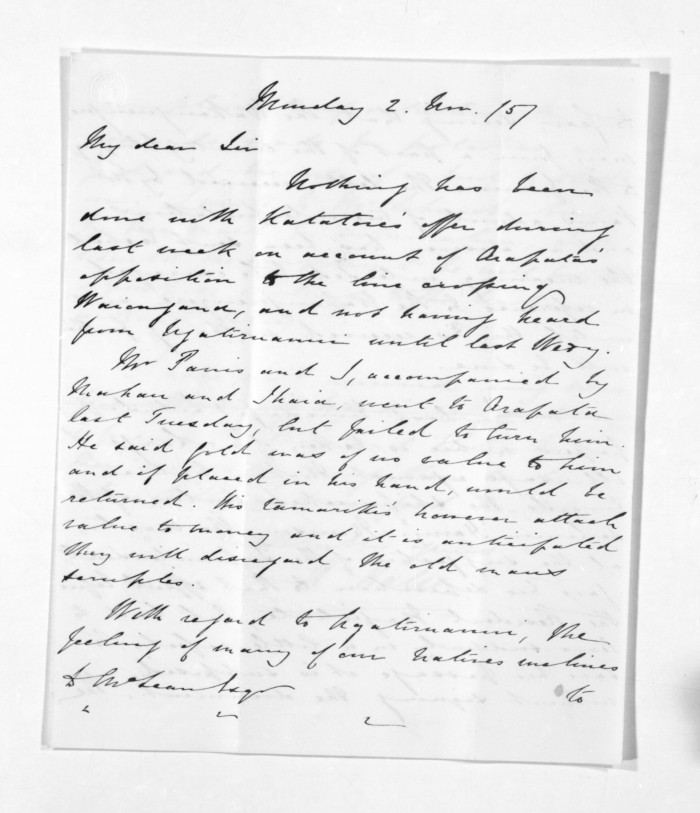 Monday 2. Nov. /57
My dear Sir
Nothing has been
done with Katatore's offer during
last week on account of Arapata's
opposition to the line crossing
Waiongana, and not having heard
from Ngatiruanui until last Wedy.
Mr Parris and I, accompanied by
Mahau and Ihaia, went to Arapata
last Tuesday, but failed to turn him.
He said gold was of no value to him
and if placed in his hand, would be
returned. His tamarikis however attach
value to money and it is anticipated
they will disregard the old man's
scruples.
With regard to Ngatiruanui, the
feeling of many of our natives inclines
D McLean Esqr
to